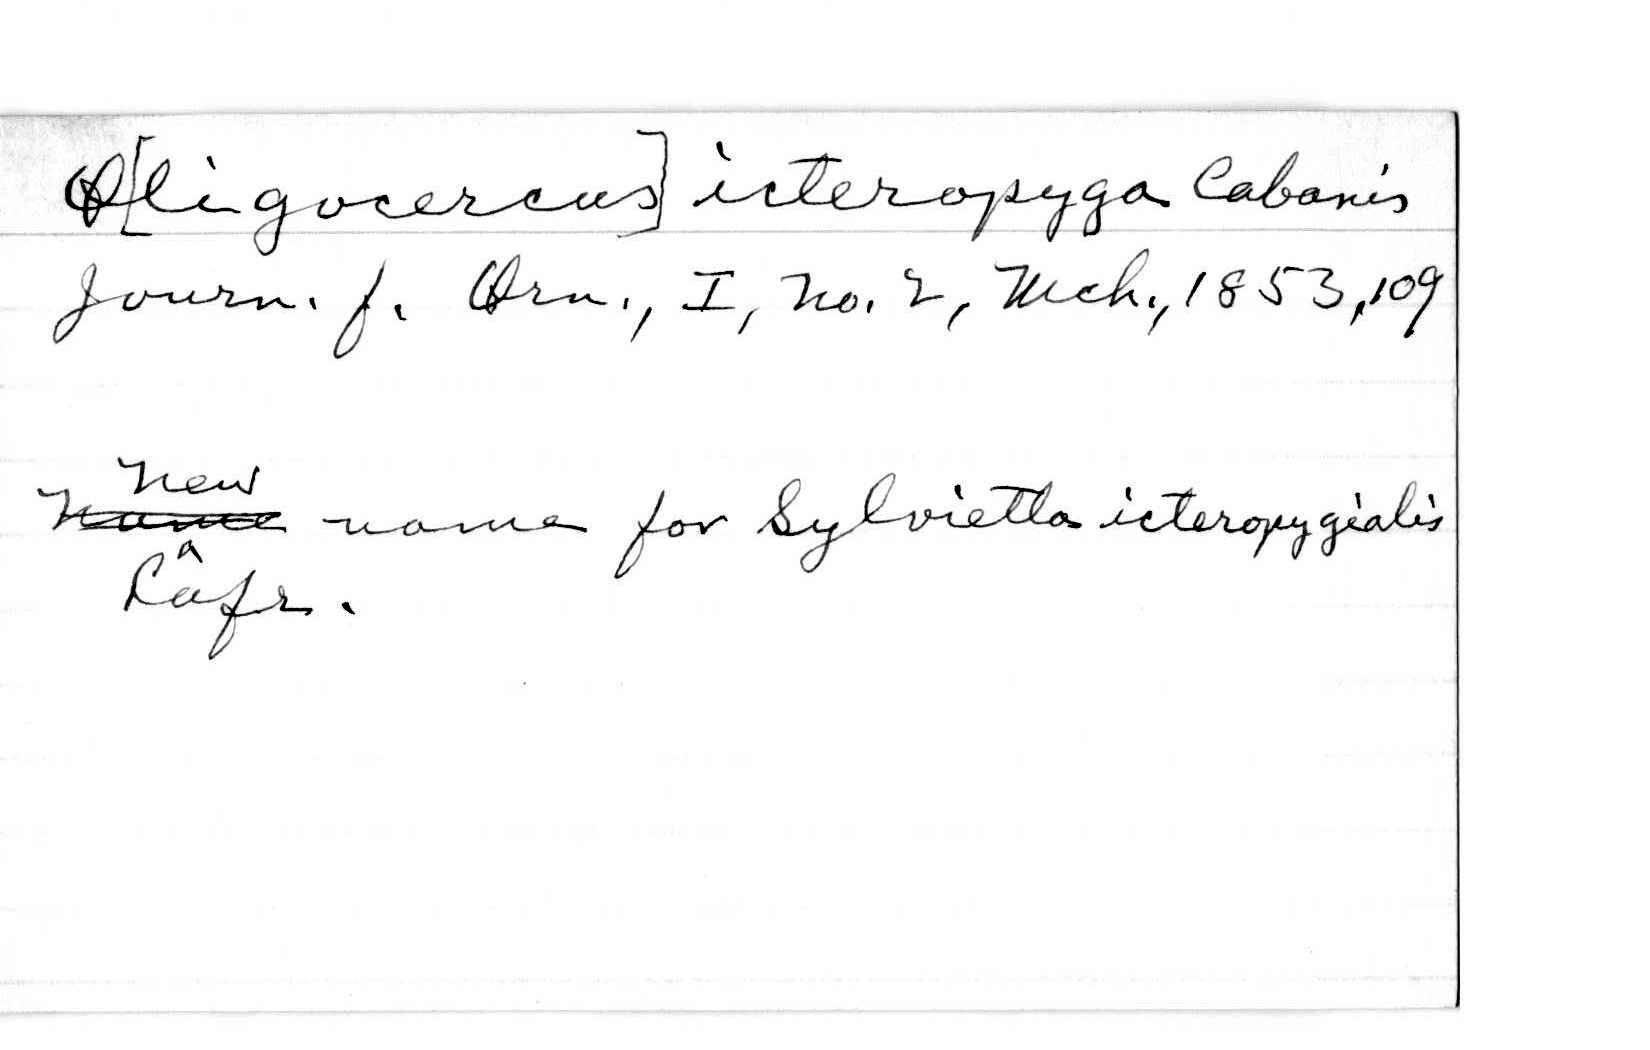 O[ligocercus] icteropyga Cabanis
Journ. f. Orn., I, No. 2, Mch., 1853, 109
New
Name name for Sylvietta icteropygialis
Lafr.